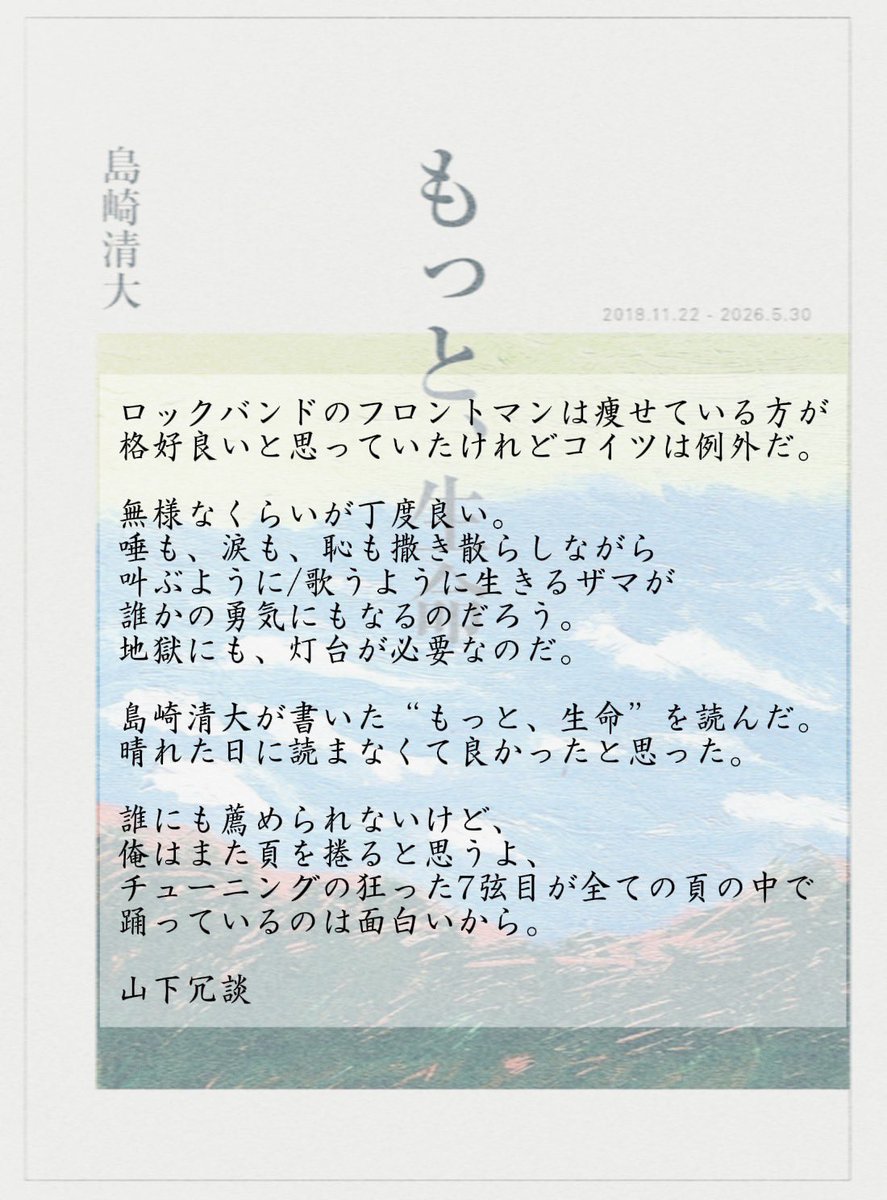 もっと、生命
島崎清大
2018.11.22 - 2026.5.30
ロックバンドのフロントマンは痩せている方が
格好良いと思っていたけれどコイツは例外だ。
無様なくらいが丁度良い。
唾も、涙も、恥も撒き散らしながら
叫ぶように/歌うように生きるザマが
誰かの勇気にもなるのだろう。
地獄にも、灯台が必要なのだ。
島崎清大が書いた“もっと、生命”を読んだ。
晴れた日に読まなくて良かったと思った。
誰にも薦められないけど、
俺はまた頁を捲ると思うよ、
チューニングの狂った7弦目が全ての頁の中で
踊っているのは面白いから。
山下冗談